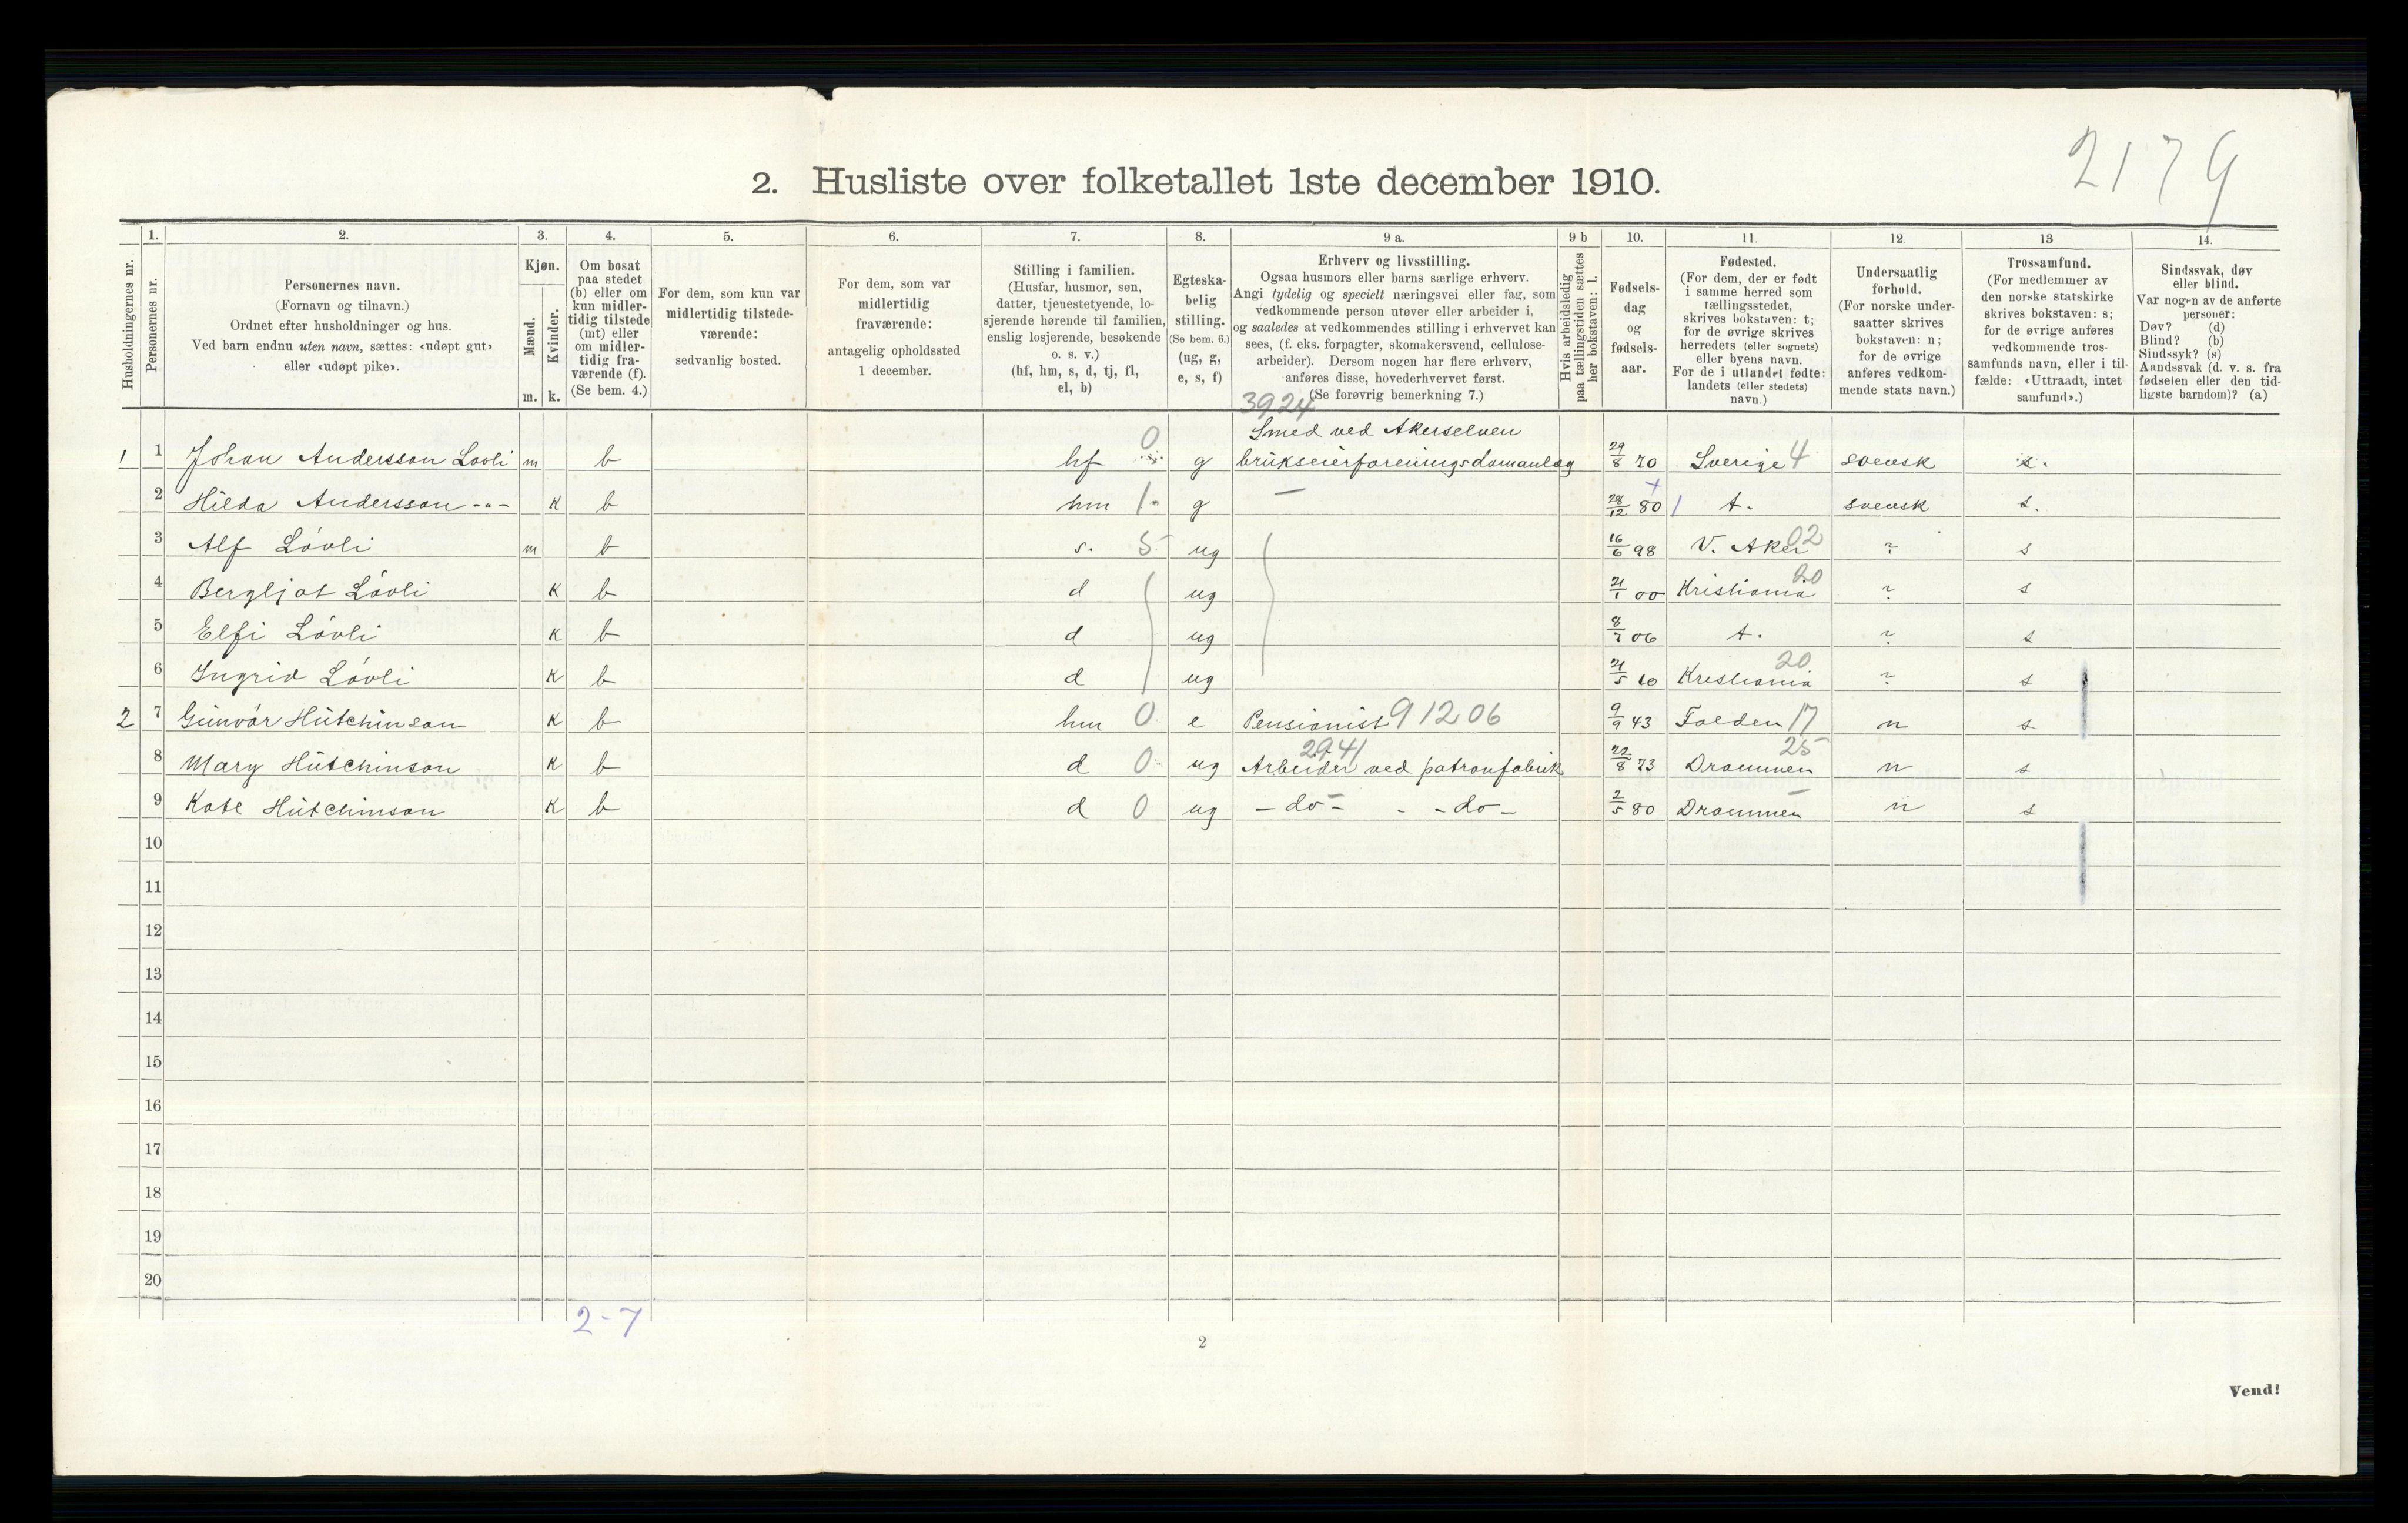 2179
2. Husliste over folketallet 1ste december 1910.
Husholdningernes nr.
1.
Personernes nr.
2.
Personernes navn.
(Fornavn og tilnavn.)
Ordnet efter husholdninger og hus.
Ved barn endnu uten navn, sættes: «udøpt gut»
eller «udøpt pike».
3.
Kjøn.
Mænd.
Kvinder.
m. k.
4.
Om bosat
paa stedet
(b) eller om
kun midler-
tidig tilstede
(mt) eller
om midler-
tidig fra-
værende (f).
(Se bem. 4.)
5.
For dem, som kun var
midlertidig tilstede-
værende:
sedvanlig bosted.
6.
For dem, som var
midlertidig
fraværende:
antagelig opholdssted
1 december.
7.
Stilling i familien.
(Husfar, husmor, søn,
datter, tjenestetyende, lo-
sjerende hørende til familien,
enslig losjerende, besøkende
o. s. v.)
(hf, hm, s, d, tj, fl,
el, b)
8.
Egteska-
belig
stilling.
(Se bem. 6.)
(ug, g,
e, s, f)
9 a.
Erhverv og livsstilling.
Ogsaa husmors eller barns særlige erhverv.
Angi tydelig og specielt næringsvei eller fag, som
vedkommende person utøver eller arbeider i,
og saaledes at vedkommendes stilling i erhvervet kan
sees, (f. eks. forpagter, skomakersvend, cellulose-
arbeider). Dersom nogen har flere erhverv,
anføres disse, hovederhvervet først.
(Se forøvrig bemerkning 7.)
9 b
Hvis arbeidsledig
paa tællingstiden sættes
her bokstaven: l.
10.
Fødsels-
dag
og
fødsels-
aar.
11.
Fødested.
(For dem, der er født
i samme herred som
tællingsstedet,
skrives bokstaven: t;
for de øvrige skrives
herredets (eller sognets)
eller byens navn.
For de i utlandet fødte:
landets (eller stedets)
navn.)
12.
Undersaatlig
forhold.
(For norske under-
saatter skrives
bokstaven: n;
for de øvrige
anføres vedkom-
mende stats navn.)
13
Trossamfund.
(For medlemmer av
den norske statskirke
skrives bokstaven: s;
for de øvrige anføres
vedkommende tros-
samfunds navn, eller i til-
fælde: «Uttraadt, intet
samfund».)
14.
Sindssvak, døv
eller blind.
Var nogen av de anførte
personer:
Døv? (d)
Blind? (b)
Sindssyk? (s)
Aandssvak (d. v. s. fra
fødselen eller den tid-
ligste barndom)? (a)
3924
Smed ved Akerselven
1 1 Johan Andersson Lovli m b hf 0 g brukseierforenings damanlæg 29/8 70 Sverige 4 svensk s.
2 Hilda Andersson -"- k b hm 1. g — 28/12 80 t. svensk s.
3 Alf Lövli m b s. 5 ug 16/6 98 V. Aker 02 ? s
4 Bergljot Lövli k b d ug 21/1 00 Kristiania 20 ? s
5 Elfi Lövli k b d ug 8/7 06 t. ? s
6 Ingrid Lövli k b d ug 21/5 10 Kristiania 20 ? s
2 7 Gunvor Hutchinson k b hm 0 e Pensionist 91206 9/9 43 Folden 17 n s
8 Mary Hutchinson k b d 0 ug Arbeider ved patronfabrik 2941 22/8 73 Drammen 25 n s
9 Kate Hutchinson k b d 0 ug - do - - do - 2/5 80 Drammen n s
10
11
12
13
14
15
16
17
18
19
20
2-7
2
Vend!